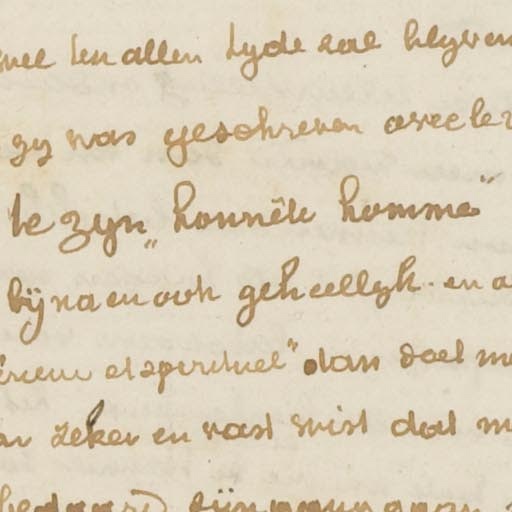 ten allen tyde sal blyven
gy was geschreven
te zyn „honnête homme"
bÿna en ook geheellyk. en a
et spirituel" dan doet m
zeker en vast wist dat m